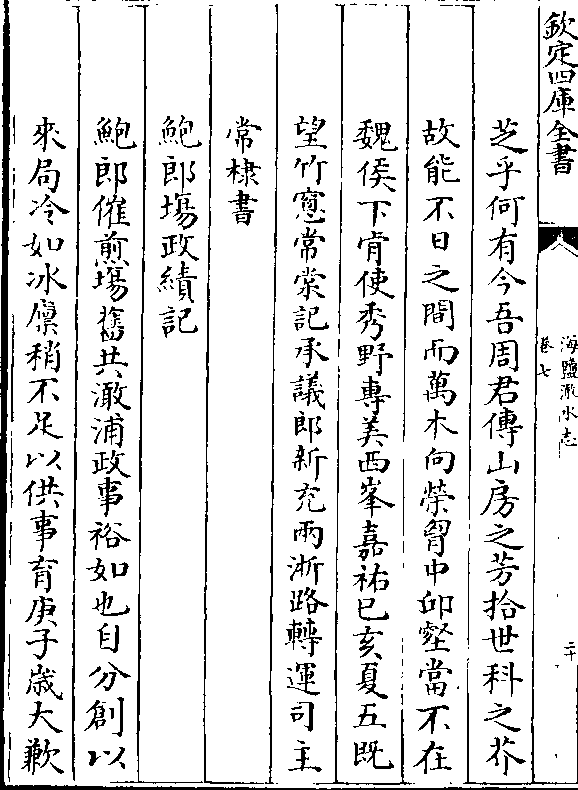 欽定四庫全書
海鹽澉水志
卷七
二十
芝乎何有今吾周君傳山房之芳拾世科之芥
故能不日之間而萬木向榮胷中邱壑當不在
魏侯下肯使秀野專美西峯嘉祐已亥夏五既
望竹窻常棠記承議郎新充兩浙路轉運司主
常棣書
鮑郎塲政績記
鮑郎傕煎塲舊共澉浦政事裕如也自分創以
來局冷如冰廪稍不足以供事育庚子歳大歉